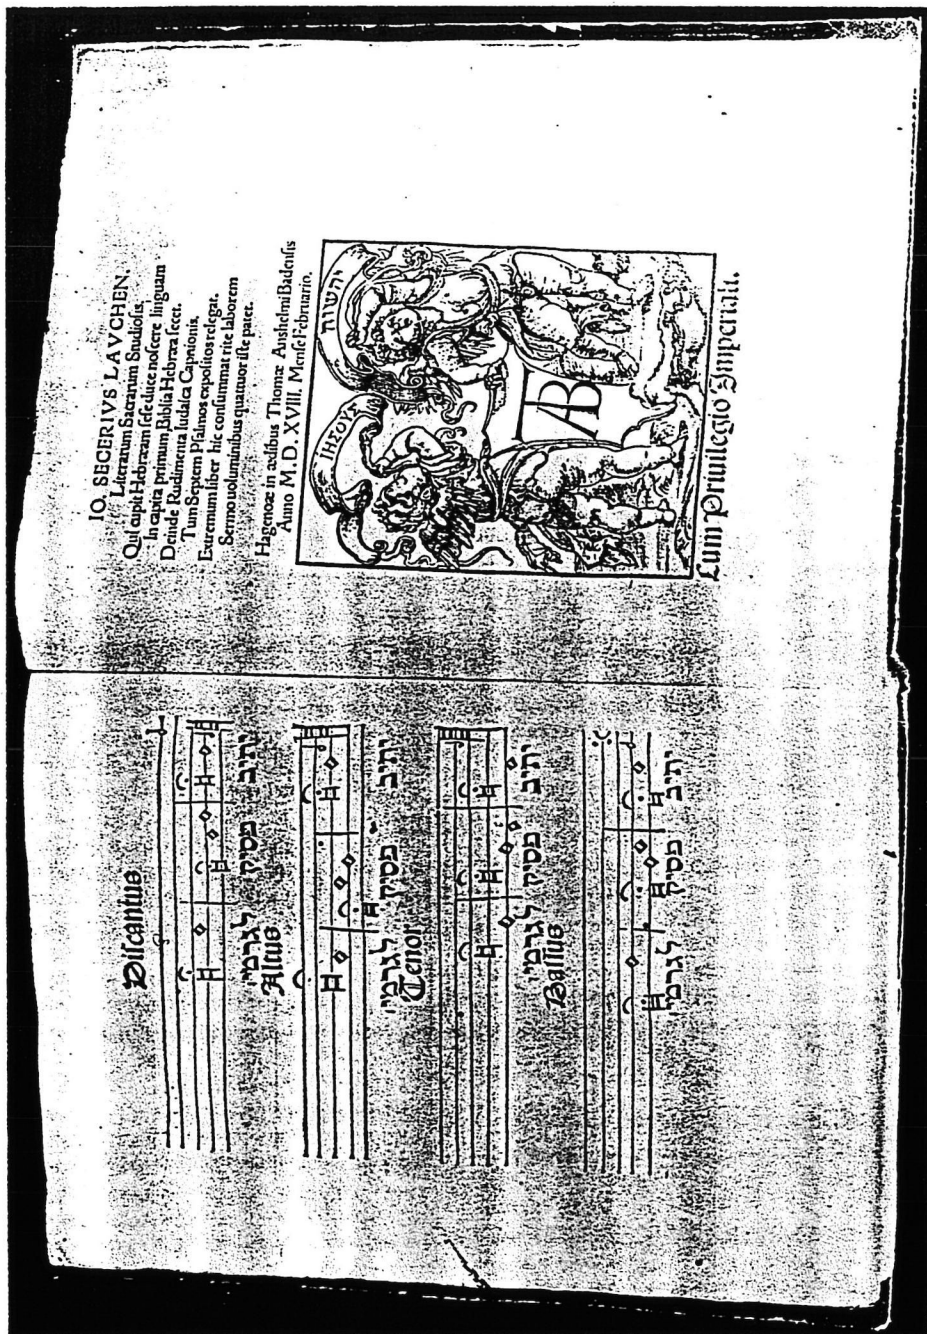 Discantus
יתיב פסיק לגרמיי
Altus
יתיב פסיק לגרמיי
Tenor
יתיב פסיק לגרמיי
Bassus
יתיב פסיק לגרמיי
IO. SECERIVS LAVCHEN.
Literarum Sacrarum Studiosis.
Qui cupit Hebræam sese duce noscere linguam
In capita primum Biblia Hebræa secet.
Deinde Rudimenta Iudaica Capnionis,
Tum Septem Psalmos expositos relegat.
Extremum liber hic consummat rite laborem
Sermo uoluminibus quattuor iste patet.
Hagenoæ in ædibus Thomæ Anshelmi Badensis
Anno M.D.XVIII. Mense Februario.
ΙΗΣΟΥΣ
יהשוה
TAB
Cum Priuilegio Imperiali.